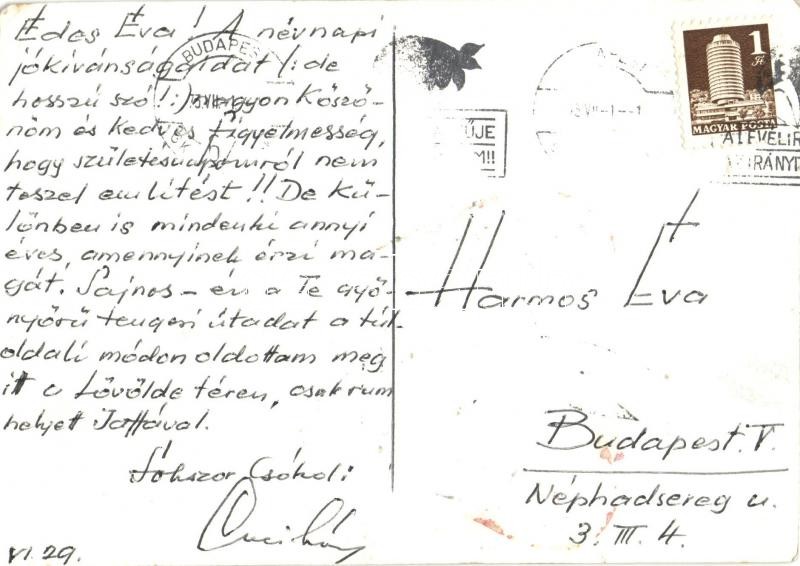 Édes Éva! A névnapi
jókívánságaidat /: de
hosszú szó! :/ nagyon köszö-
nöm és kedves figyelmesség,
hogy születésnapomról nem
teszel említést!! De kü-
lönben is mindenki annyi
éves, amennyinek érzi ma-
gát. Sajnos – én a Te gyö-
nyörű tengeri útadat a túl-
oldali módon oldottam meg
itt a Lövölde téren, csak rum
helyett Jaffával.
Sokszor Csókol:
VI. 29.
BUDAPEST
1 Ft
MAGYAR POSTA
Harmos Éva
Budapest. V.
Néphadsereg u.
3. III. 4.